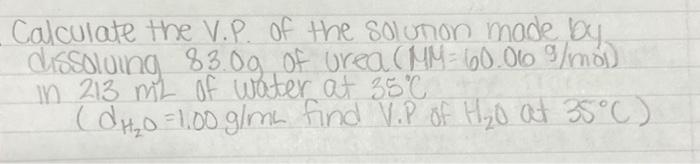 Calculate the V.P. of the solution made by
dissolving 83.0g of urea (MM=60.06 g/mol)
in 213 mL of water at 35°C
(dH₂O =1.00 g/mL find V.P of H₂O at 35°C)